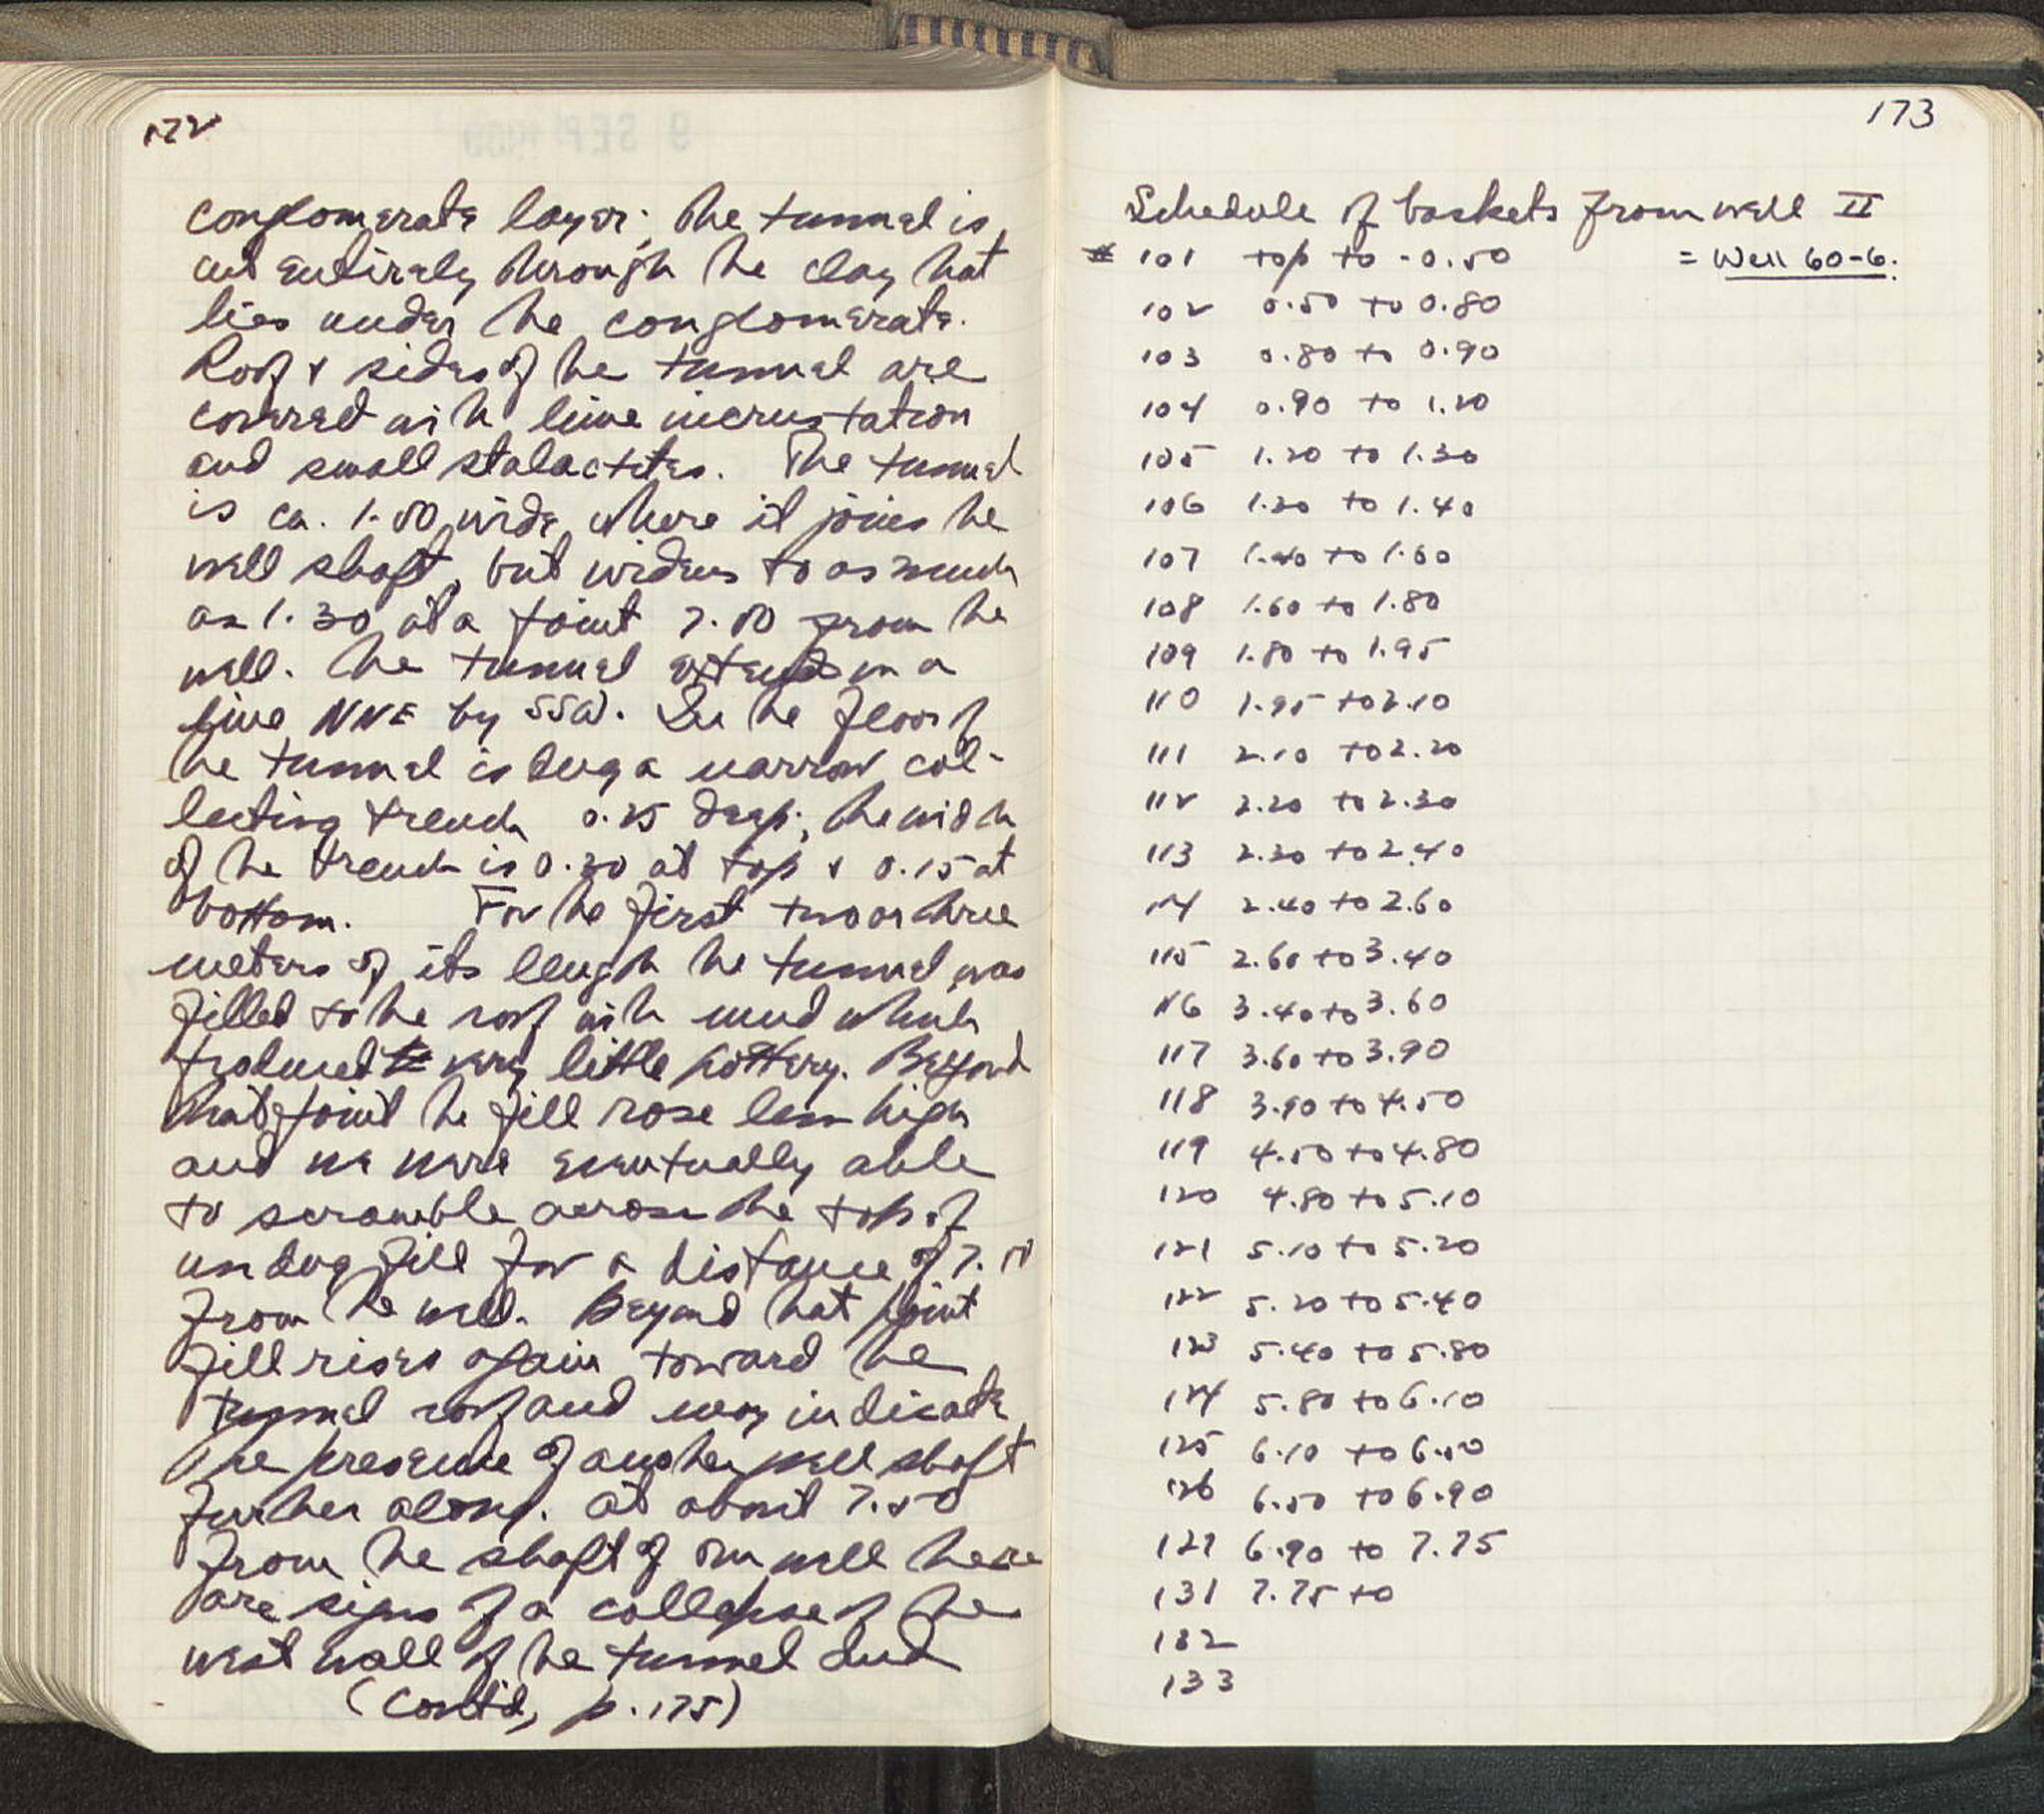 172
conglomerate layer; the tunnel is
cut entirely through the clay that
lies under the conglomerate.
Roof & sides of the tunnel are
covered with lime incrustation
and small stalactites. The tunnel
is ca. 1.00 wide where it joins the
well shaft, but widens to as much
as 1.30 at a point 7.00 from the
well. The tunnel extends in a
line NNE by SSW. In the floor of
the tunnel is dug a narrow col-
lecting trench 0.25 deep; the width
of the trench is 0.30 at top & 0.15 at
bottom. For the first two or three
meters of its length the tunnel was
filled to the roof with mud which
produced very little pottery. Beyond
that point the fill rose less high
and we were eventually able
to scramble across the top of
undug fill for a distance of 7.50
from the well. Beyond that point
fill rises again toward the
tunnel roof and may indicate
the presence of another well shaft
further along. At about 7.50
from the shaft of our well there
are signs of a collapse of the
west wall of the tunnel and
(cont'd, p. 175)
173
Schedule of baskets from well II
# 101 top to -0.50 = Well 60-6.
102 0.50 to 0.80
103 0.80 to 0.90
104 0.90 to 1.20
105 1.20 to 1.30
106 1.30 to 1.40
107 1.40 to 1.60
108 1.60 to 1.80
109 1.80 to 1.95
110 1.95 to 2.10
111 2.10 to 2.20
112 2.20 to 2.30
113 2.30 to 2.40
114 2.40 to 2.60
115 2.60 to 3.40
116 3.40 to 3.60
117 3.60 to 3.90
118 3.90 to 4.50
119 4.50 to 4.80
120 4.80 to 5.10
121 5.10 to 5.20
122 5.20 to 5.40
123 5.40 to 5.80
124 5.80 to 6.10
125 6.10 to 6.50
126 6.50 to 6.90
127 6.90 to 7.75
131 7.75 to
132
133